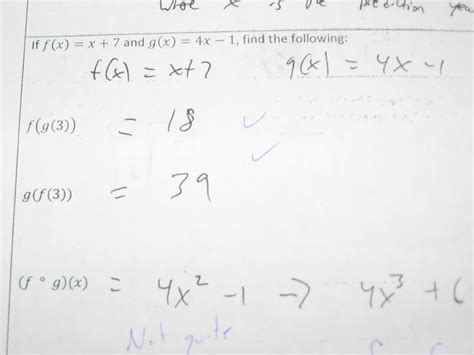 is the prediction
If f(x) = x + 7 and g(x) = 4x − 1, find the following:
f(x) = x+7 g(x) = 4x −1
f(g(3)) = 18 ✓
✓
g(f(3)) = 39
(f ∘ g)(x) = 4x² −1 → 4x³ + 6
Not quite